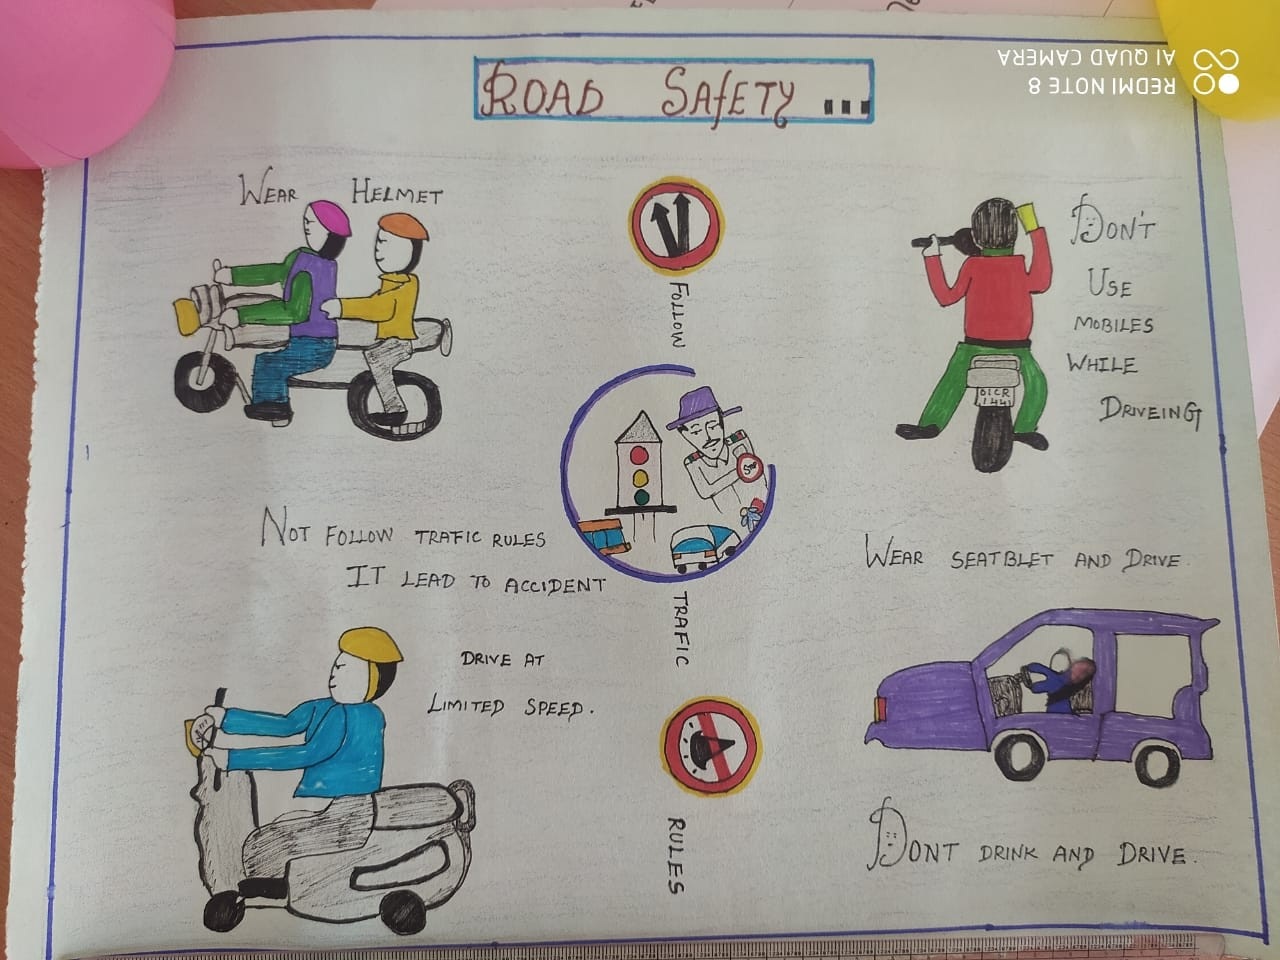 ROAD SAFETY ...
WEAR HELMET
FOLLOW
DON'T
USE
MOBILES
WHILE
DRIVEING
01CR
1441
NOT FOLLOW TRAFIC RULES
IT LEAD TO ACCIDENT
TRAFIC
WEAR SEATBLET AND DRIVE.
DRIVE AT
LIMITED SPEED.
RULES
DONT DRINK AND DRIVE.
REDMI NOTE 8
AI QUAD CAMERA